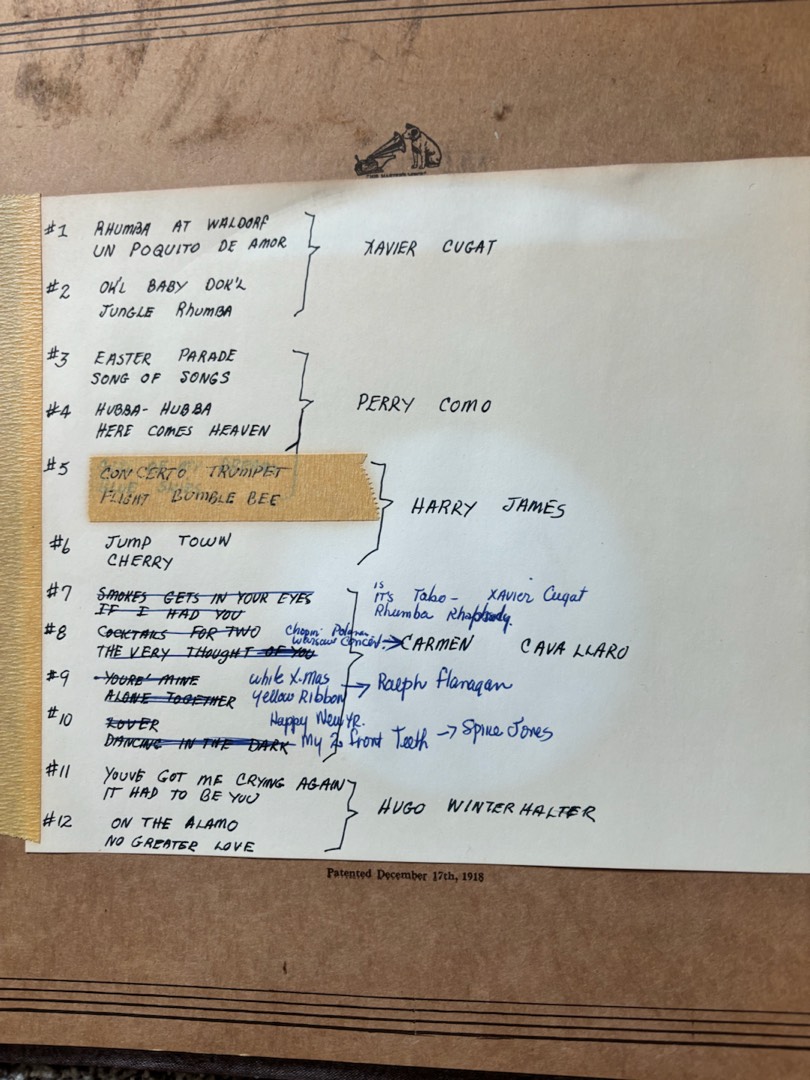 #1 RHUMBA AT WALDORF
UN POQUITO DE AMOR
XAVIER CUGAT
#2 OK'L BABY DOK'L
JUNGLE RhumBA
#3 EASTER PARADE
SONG OF SONGS
#4 HUBBA-HUBBA
HERE COMES HEAVEN
PERRY COMO
#5 CONCERTO TRUMPET
FLIGHT BUMBLE BEE
HARRY JAMES
#6 JUMP TOWN
CHERRY
#7 SMOKES GETS IN YOUR EYES
IF I HAD YOU
is
iT's Tabo - XAvier Cugat
Rhumba Rhapsody
#8 COCKTAILS FOR TWO
THE VERY THOUGHT OF YOU
Chopin Polonaise
Warsaw Concer. → CARMEN CAVALLARO
#9 YOURE' MINE
ALONE TOGETHER
white X-mas
Yellow Ribbon → Ralph Flanagan
#10 LOVER
DANCING IN THE DARK
Happy New YR.
My 2 front Teeth → Spike Jones
#11 YOUVE GOT ME CRYING AGAIN
IT HAD TO BE YOU
HUGO WINTERHALTER
#12 ON THE ALAMO
NO GREATER LOVE
Patented December 17th, 1918